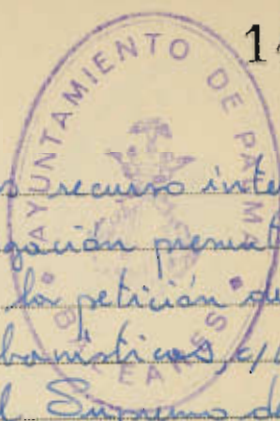 14
AYUNTAMIENTO DE PALMA
BALEARES
recurso inte
gación presunt
la petición de
banísticas, c/
Supremo d